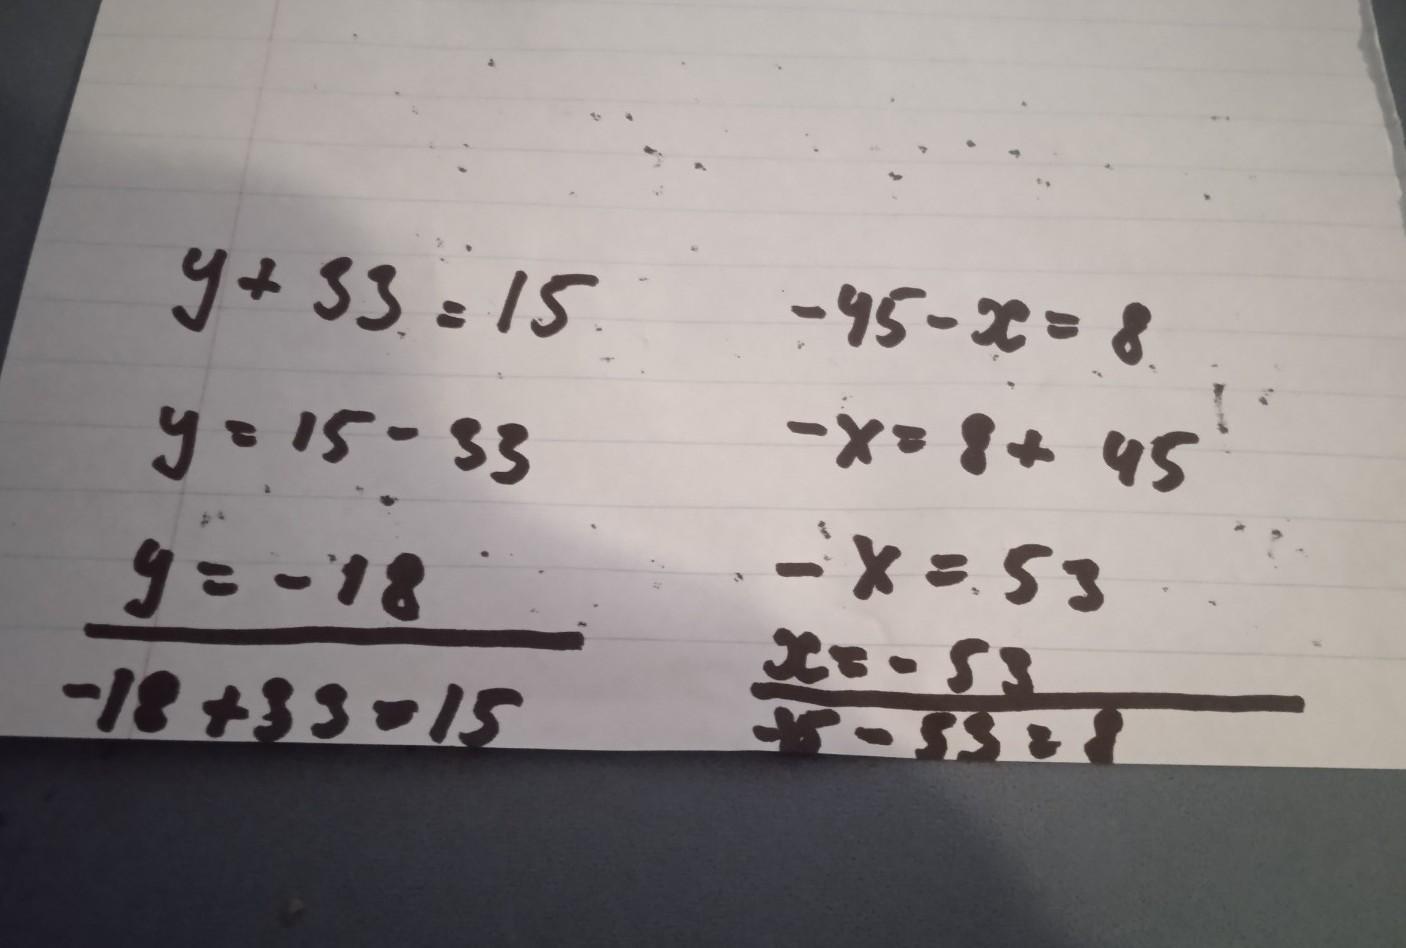 y + 33 = 15
y = 15 - 33
y = - 18
-18 + 33 = 15
-45 - x = 8
-x = 8 + 45
- x = 53
x = - 53
-45 - 53 = 8